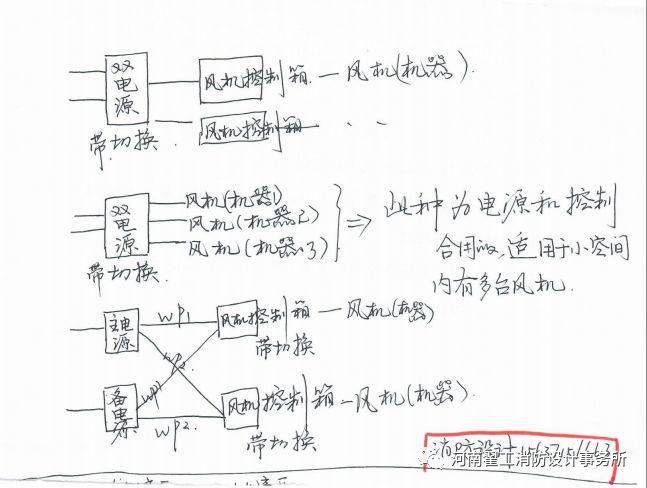 双电源
风机控制箱 — 风机(机器).
风机控制箱
带切换.
双电源
风机(机器1)
风机(机器2)
风机(机器3)
带切换.
⇒ 此种为电源和控制
合用的,适用于小空间
内有多台风机.
主电源
WP1
风机控制箱 — 风机(机器)
带切换
WP2
WP1
备电源
WP2.
风机控制箱 — 风机(机器).
带切换
河南霍工消防设计事务所